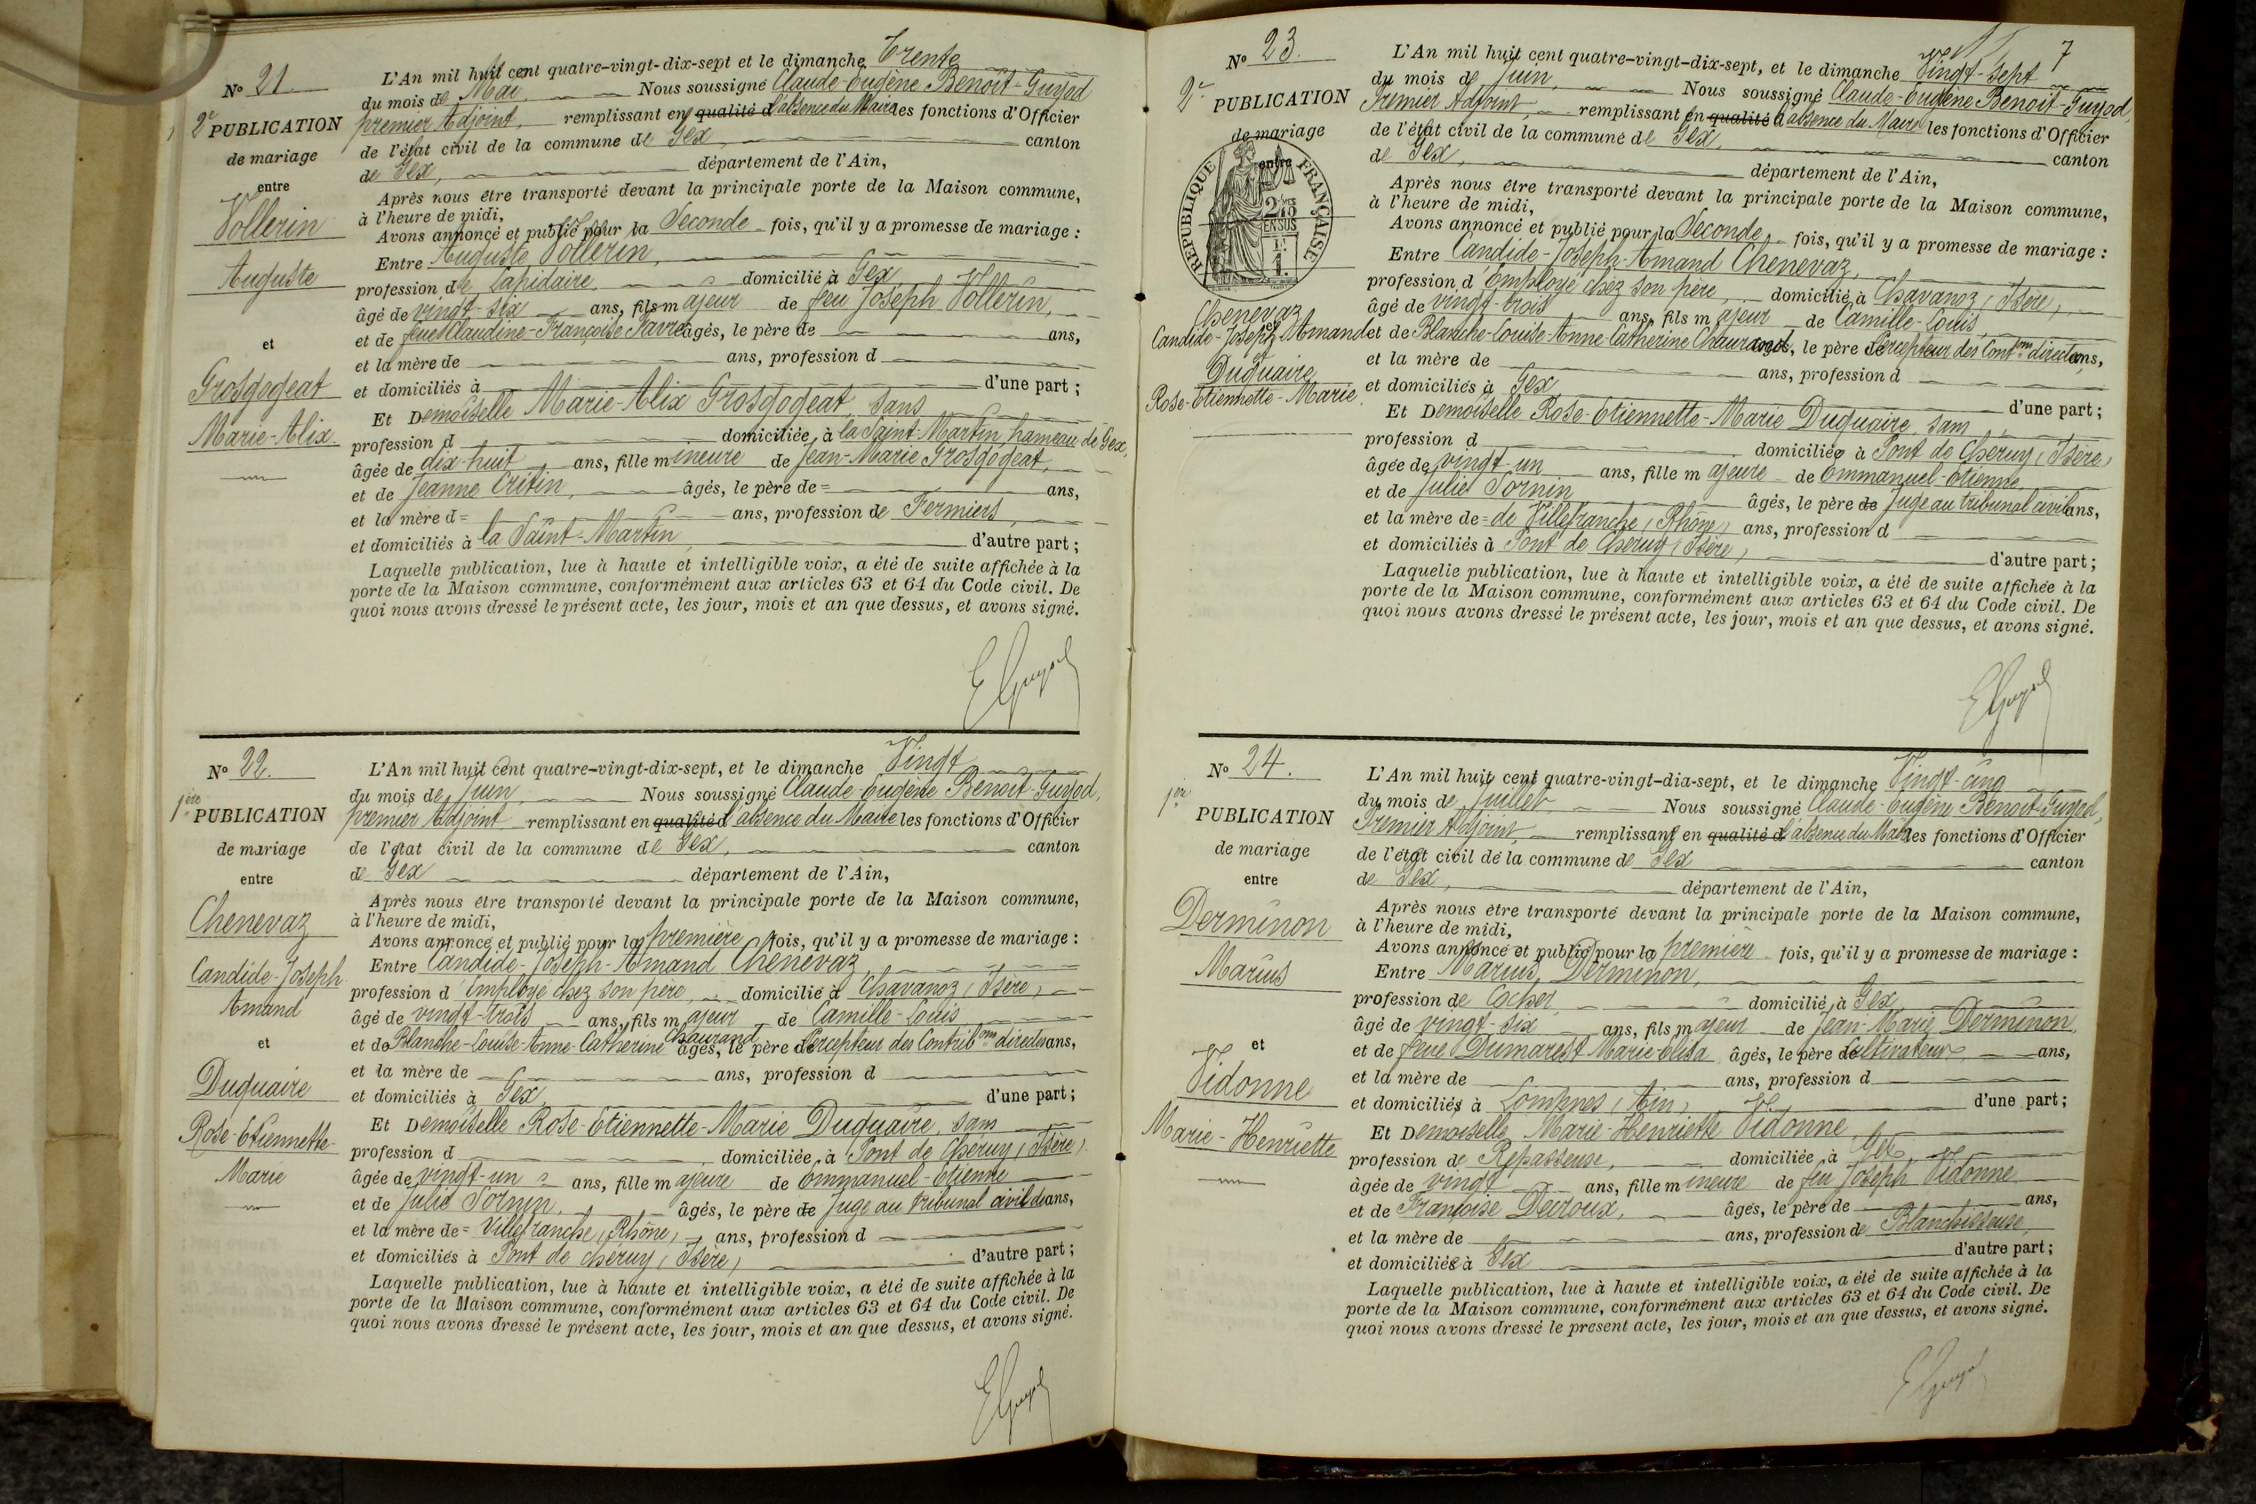 N° 21.
2e PUBLICATION
de mariage
entre
Vollerin
Auguste
et
Grosgogeat
Marie-Alix
L'An mil huit cent quatre-vingt-dix-sept et le dimanche Trente
du mois de Mai Nous soussigné Claude-Eugène Benoit-Guyod
premier Adjoint, remplissant en qualité d l'absence du Maire les fonctions d'Officier
de l'état civil de la commune de Gex, canton
de Gex, département de l'Ain,
Après nous être transporté devant la principale porte de la Maison commune,
à l'heure de midi,
Avons annoncé et publié pour la Seconde fois, qu'il y a promesse de mariage :
Entre Auguste Vollerin,
profession de Lapidaire, domicilié à Gex
âgé de vingt-six ans, fils majeur de feu Joseph Vollerin,
et de feue Claudine-Françoise Favre âgés, le père de ans,
et la mère de ans, profession d
et domiciliés à d'une part ;
Et Demoiselle Marie-Alix Grosgogeat, sans
profession d domiciliée à la Saint-Martin, hameau de Gex,
âgée de dix-huit ans, fille mineure de Jean-Marie Grosgogeat,
et de Jeanne Critin, âgés, le père de = ans,
et la mère d= ans, profession de Fermiers,
et domiciliés à la Saint-Martin, d'autre part ;
Laquelle publication, lue à haute et intelligible voix, a été de suite affichée à la
porte de la Maison commune, conformément aux articles 63 et 64 du Code civil. De
quoi nous avons dressé le présent acte, les jour, mois et an que dessus, et avons signé.
E Guyod
N° 22.
1ère PUBLICATION
de mariage
entre
Chenevaz
Candide-Joseph
Amand
et
Duquaire
Rose-Etiennette-
Marie
L'An mil huit cent quatre-vingt-dix-sept, et le dimanche Vingt
du mois de Juin, Nous soussigné Claude-Eugène Benoit-Guyod,
premier Adjoint remplissant en qualité d l'absence du Maire les fonctions d'Officier
de l'état civil de la commune de Gex, canton
de Gex département de l'Ain,
Après nous être transporté devant la principale porte de la Maison commune,
à l'heure de midi,
Avons annoncé et publié pour la première fois, qu'il y a promesse de mariage :
Entre Candide-Joseph-Amand Chenevaz,
profession d'Employé chez son père, domicilié à Chavanoz (Isère)
âgé de vingt-trois ans, fils majeur de Camille-Louis
et de Blanche-Louise-Anne-Catherine Chaurand âgés, le père de Percepteur des Contribons directes ans,
et la mère de ans, profession d
et domiciliés à Gex, d'une part ;
Et Demoiselle Rose-Etiennette-Marie Duquaire, sans
profession d domiciliée à Pont de Chéruy (Isère)
âgée de vingt-un = ans, fille majeure de Emmanuel-Etienne
et de Julie Sornin, âgés, le père de Juge au tribunal civil de ans,
et la mère de = Villefranche (Rhône) ans, profession d
et domiciliés à Pont de chéruy (Isère) d'autre part ;
Laquelle publication, lue à haute et intelligible voix, a été de suite affichée à la
porte de la Maison commune, conformément aux articles 63 et 64 du Code civil. De
quoi nous avons dressé le présent acte, les jour, mois et an que dessus, et avons signé.
E Guyod
7
N° 23.
2e PUBLICATION
de mariage
entre
RÉPUBLIQUE FRANÇAISE
2/10ES
EN SUS
Chenevaz
Candide-Joseph-Amand
et
Duquaire
Rose-Etiennette-Marie
L'An mil huit cent quatre-vingt-dix-sept, et le dimanche Vingt-sept
du mois de Juin, Nous soussigné Claude-Eugène Benoit-Guyod,
Premier Adjoint, remplissant en qualité d l'absence du Maire les fonctions d'Officier
de l'état civil de la commune de Gex, canton
de Gex, département de l'Ain,
Après nous être transporté devant la principale porte de la Maison commune,
à l'heure de midi,
Avons annoncé et publié pour la Seconde fois, qu'il y a promesse de mariage :
Entre Candide-Joseph-Amand Chenevaz,
profession d'Employé chez son père, domicilié à Chavanoz (Isère)
âgé de vingt-trois ans, fils majeur de Camille-Louis,
et de Blanche-Louise-Anne-Catherine Chaurand âgés, le père de Percepteur des Contons directes ans,
et la mère de ans, profession d
et domiciliés à Gex d'une part ;
Et Demoiselle Rose-Etiennette-Marie Duquaire, sans
profession d domiciliée à Pont de Chéruy (Isère)
âgée de vingt-un ans, fille majeure de Emmanuel-Etienne
et de Julie Sornin âgés, le père de Juge au tribunal civil ans,
et la mère de = de Villefranche (Rhône) ans, profession d
et domiciliés à Pont de Chéruy (Isère) d'autre part ;
Laquelle publication, lue à haute et intelligible voix, a été de suite affichée à la
porte de la Maison commune, conformément aux articles 63 et 64 du Code civil. De
quoi nous avons dressé le présent acte, les jour, mois et an que dessus, et avons signé.
E Guyod
N° 24.
1er
PUBLICATION
de mariage
entre
Derminon
Marius
et
Vidonne
Marie-Henriette
L'An mil huit cent quatre-vingt-dix-sept, et le dimanche Vingt-cinq
du mois de Juillet Nous soussigné Claude-Eugène Benoit-Guyod,
Premier Adjoint, remplissant en qualité d l'absence du Maire les fonctions d'Officier
de l'état civil de la commune de Gex canton
de Gex, département de l'Ain,
Après nous être transporté devant la principale porte de la Maison commune,
à l'heure de midi,
Avons annoncé et publié pour la première fois, qu'il y a promesse de mariage :
Entre Marius Derminon,
profession de Cocher, domicilié à Gex
âgé de vingt-six ans, fils majeur de Jean-Marie Derminon
et de feue Dumarest Marie Elisa âgés, le père de Cultivateur, ans,
et la mère de ans, profession d
et domiciliés à Lompnes (Ain) d'une part ;
Et Demoiselle Marie-Henriette Vidonne
profession de Repasseuse, domiciliée à Gex
âgée de vingt ans, fille mineure de feu Joseph Vidonne
et de Françoise Decroux, âgés, le père de ans,
et la mère de ans, profession de Blanchisseuse
et domiciliés à Gex d'autre part ;
Laquelle publication, lue à haute et intelligible voix, a été de suite affichée à la
porte de la Maison commune, conformément aux articles 63 et 64 du Code civil. De
quoi nous avons dressé le présent acte, les jour, mois et an que dessus, et avons signé.
E Guyod